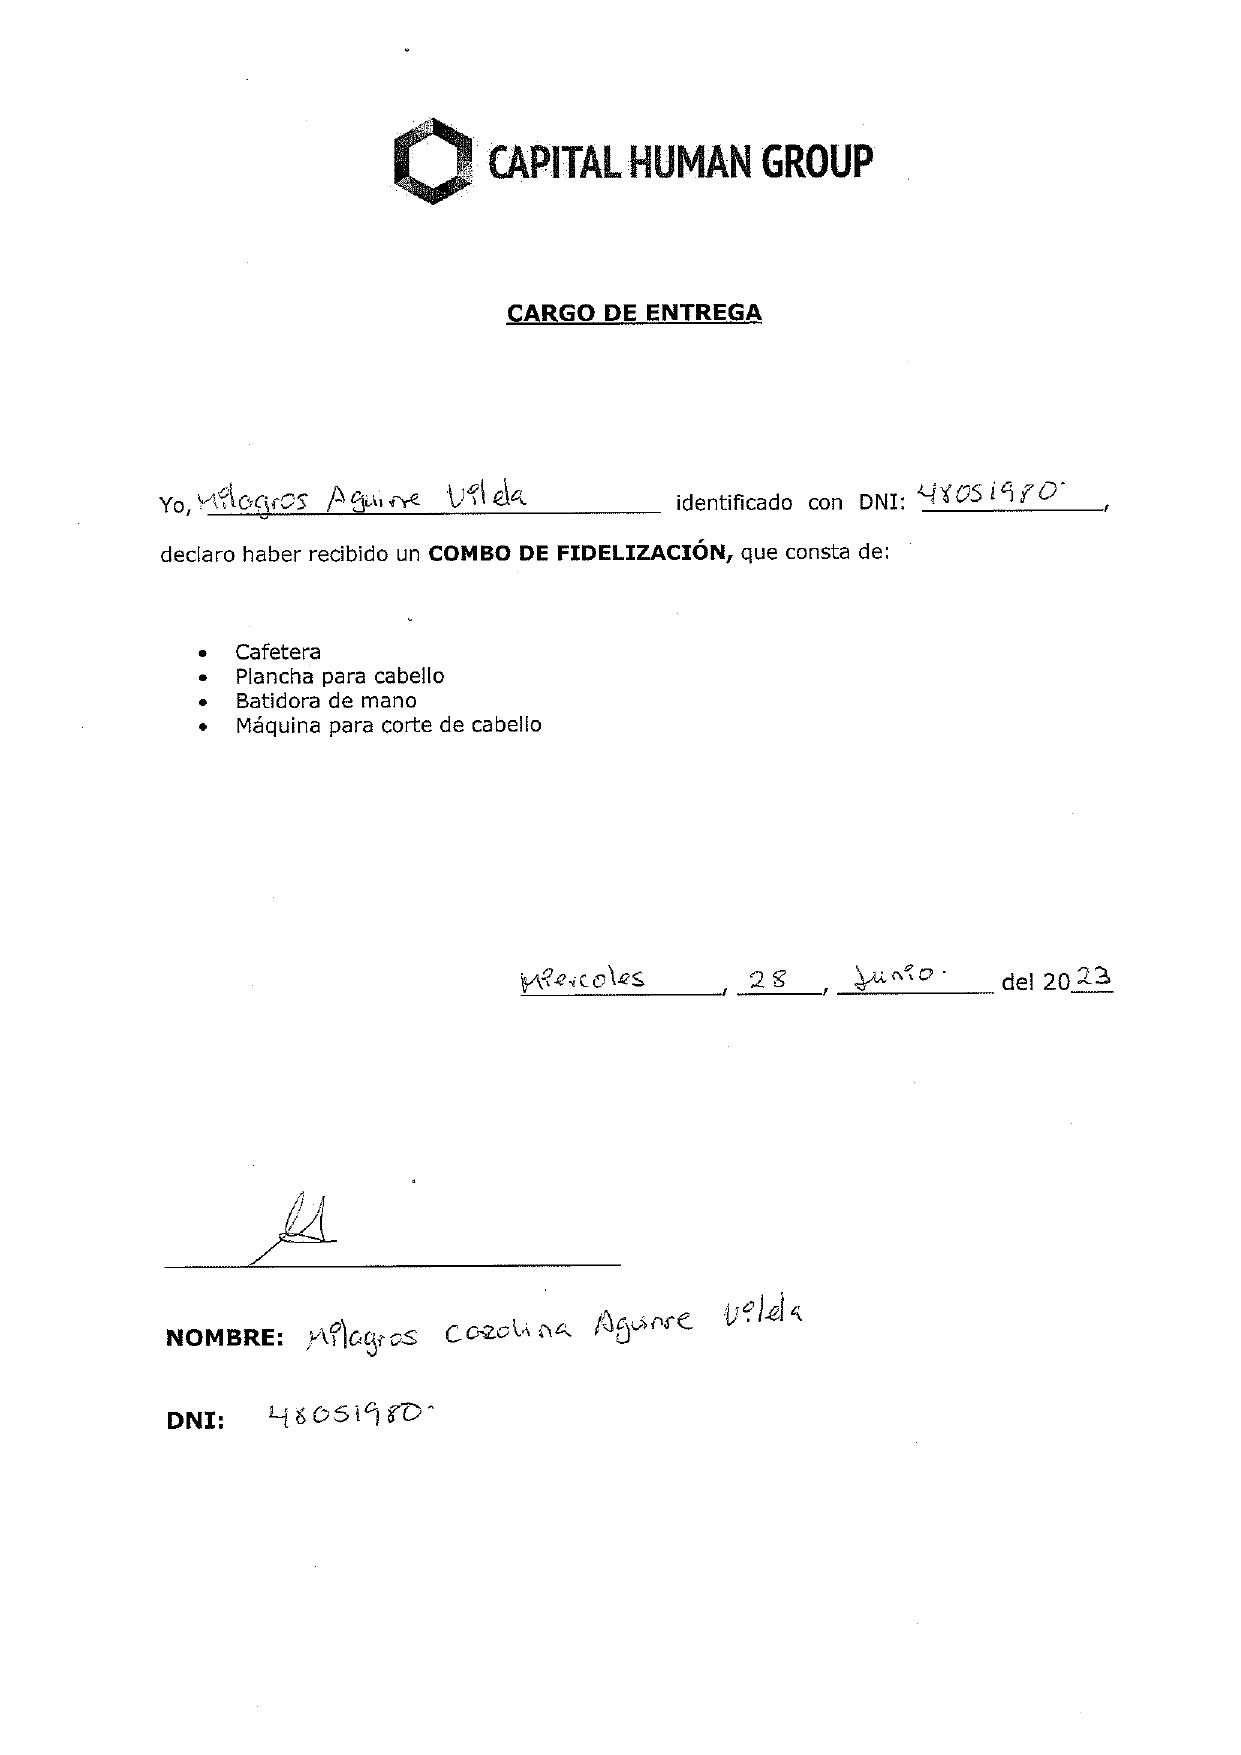 CAPITAL HUMAN GROUP
CARGO DE ENTREGA
Yo, Milagros Aguirre Vilela identificado con DNI: 48051980,
declaro haber recibido un COMBO DE FIDELIZACIÓN, que consta de:
• Cafetera
• Plancha para cabello
• Batidora de mano
• Máquina para corte de cabello
Miercoles, 28, Junio. del 2023
NOMBRE: Milagros Carolina Aguirre Vilela
DNI: 48051980